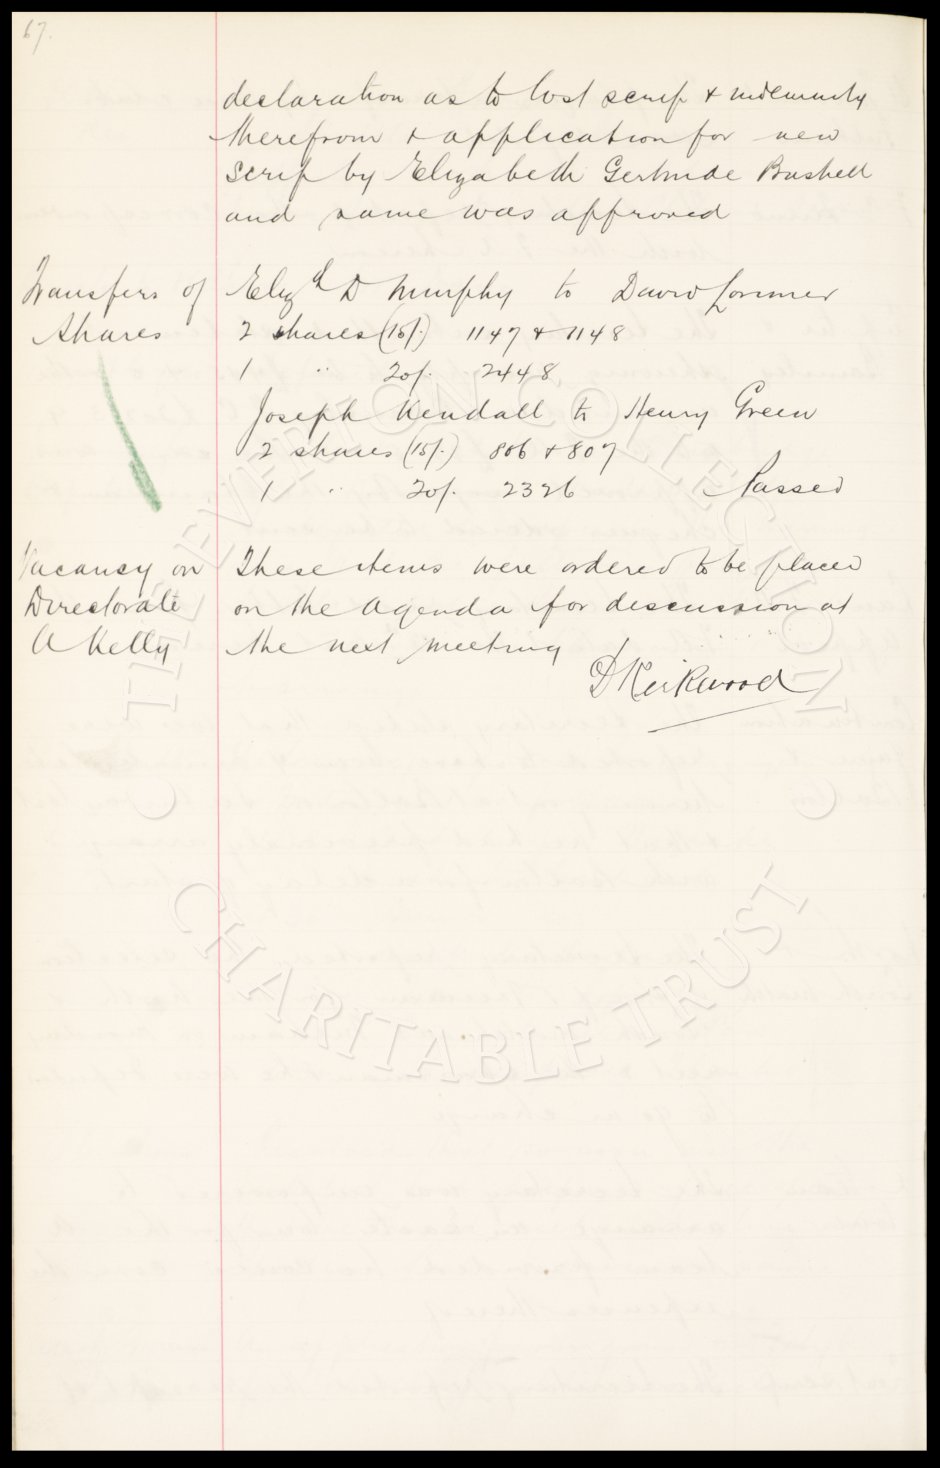 67.
declaration as to lost scrip & indemnity
therefrom & application for new
scrip by Elizabeth Gertrude Bushell
and same was approved
Transfers of Shares
Elizth D Murphy to David Lorimer
2 shares (15/-) 1147 & 1148
1 " 20/- 2448
Joseph Kendall to Henry Green
2 shares (15/-) 806 & 807
1 " 20/- 2326 Passed
Vacancy on These items were ordered to be placed
Directorate on the Agenda for discussion at
A Kelly the next meeting
D Kirkwood
© THE EVERTON COLLECTION
CHARITABLE TRUST